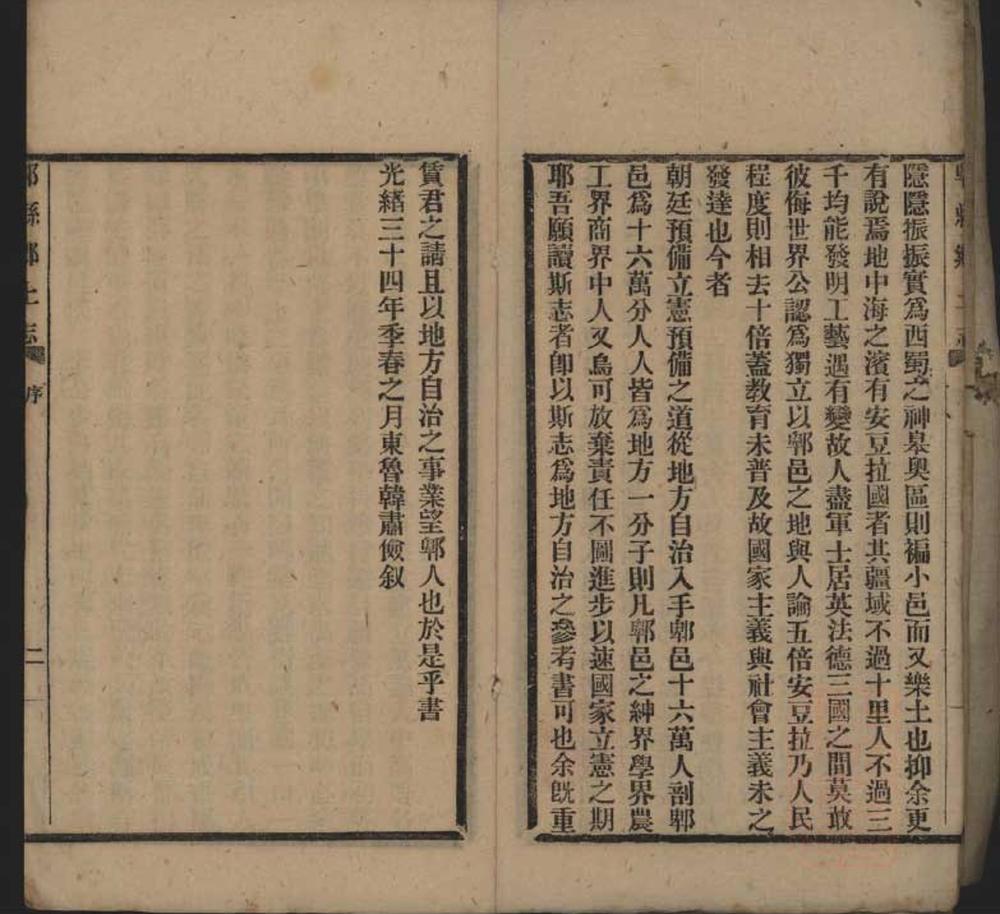 隱隱振振實爲西蜀之神皋奧區則褊小邑而又樂土也抑余更
有說焉地中海之濱有安豆拉國者其疆域不過十里人不過三
千均能發明工藝遇有變故人盡軍士居英法德三國之間莫敢
彼侮世界公認爲獨立以郫邑之地與人論五倍安豆拉乃人民
程度則相去十倍蓋教育未普及故國家主義與社會主義未之
發達也今者
朝廷預備立憲預備之道從地方自治入手郫邑十六萬人剖郫
邑爲十六萬分人人皆爲地方一分子則凡郫邑之紳界學界農
工界商界中人又烏可放棄責任不圖進步以速國家立憲之期
耶吾願讀斯志者卽以斯志爲地方自治之參考書可也余旣重
賃君之請且以地方自治之事業望郫人也於是乎書
光緒三十四年季春之月東魯韓肅儉叙
郫縣鄉土志
序
二